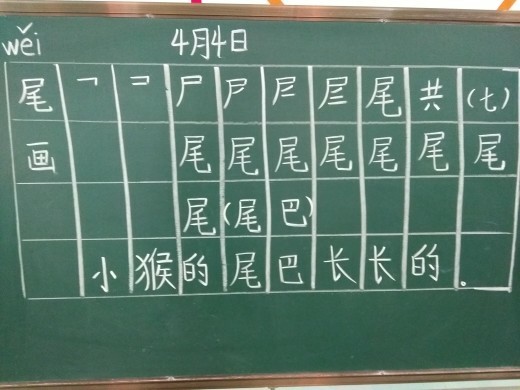 wěi 4月4日
尾 ㇕ コ 尸 尸 𡰣 尾 共 (七)
画 尾 尾 尾 尾 尾 尾 尾
尾 (尾 巴)
小 猴 的 尾 巴 长 长 的 .